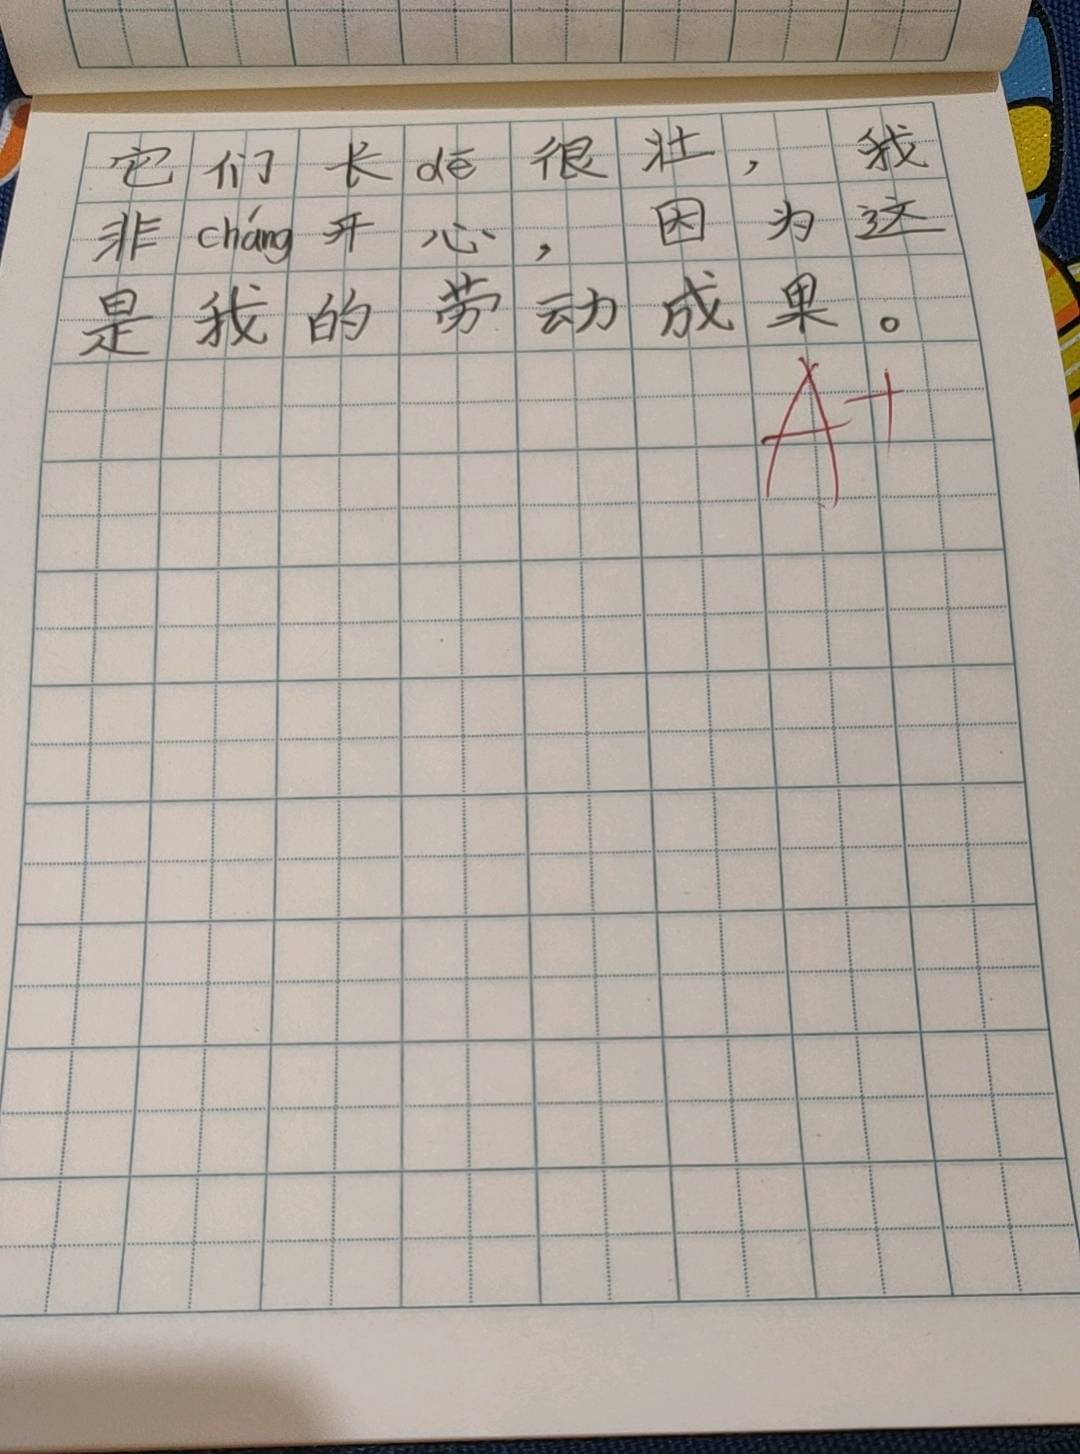 它们长dē很壮，我
非cháng开心，因为这
是我的劳动成果。
A+